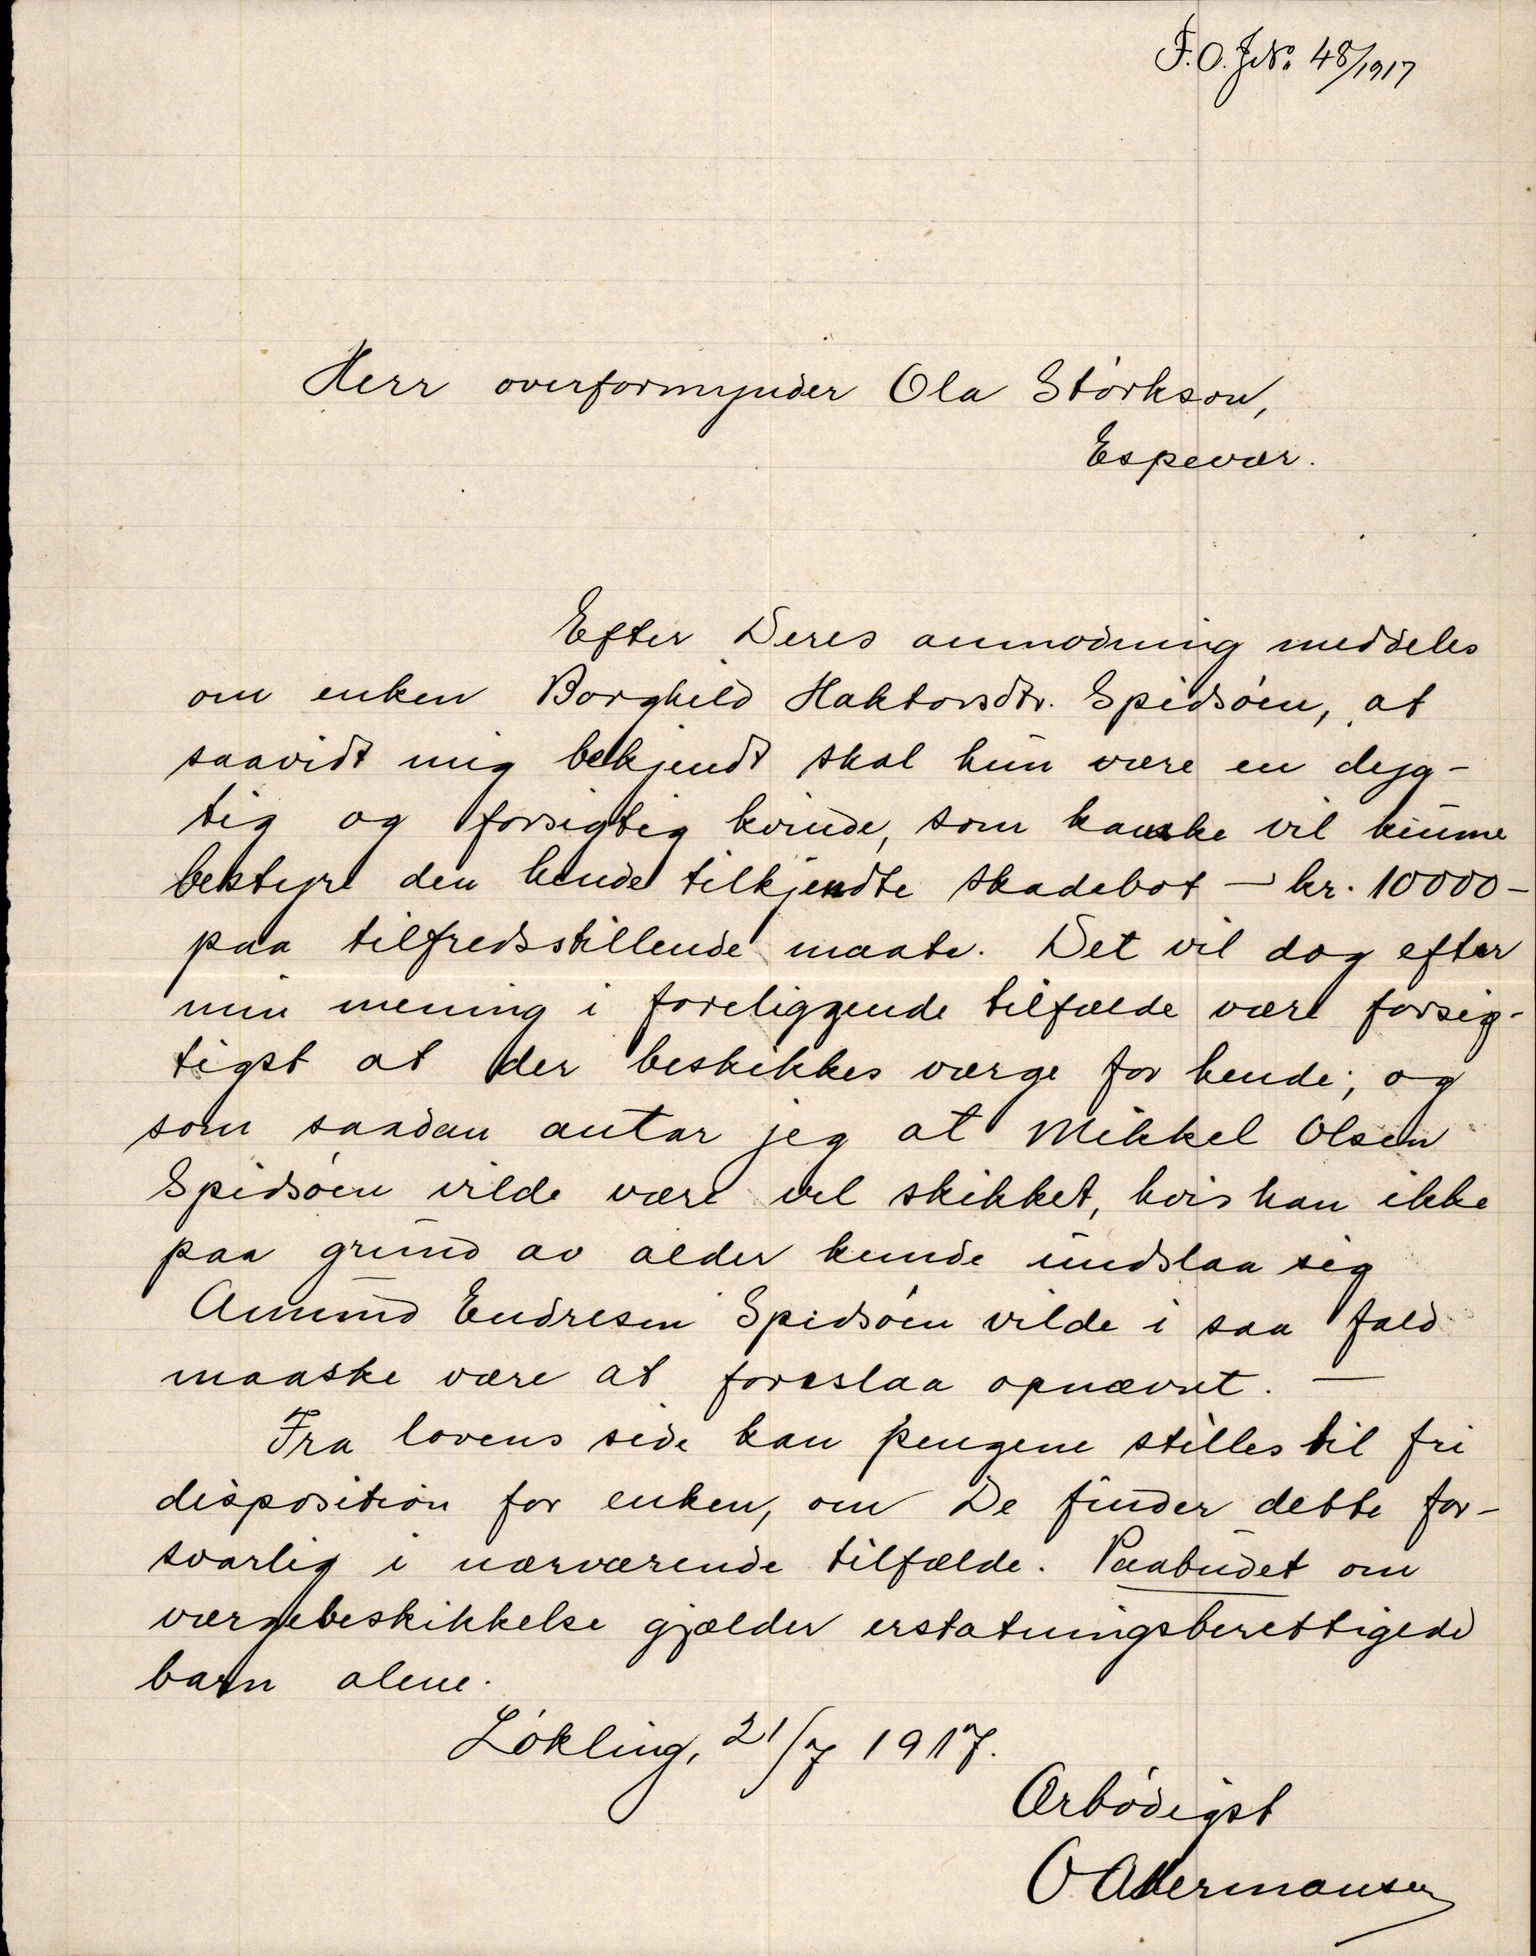 F.O. J.No. 48/1917
Herr overformynder Ola Størkson,
Espevær.
Efter Deres anmodning meddeles
om enken Borghild Haktorsdtr. Spidsøen, at
saavidt mig bekjendt skal hun være en dyg-
tig og forsigtig kvinde, som kanske vil kunne
bestyre den hende tilkjendte skadebot – kr. 10000 –
paa tilfredsstillende maate. Det vil dog efter
min mening i foreliggende tilfælde være forsig-
tigst at der beskikkes værge for hende; og
som saadan antar jeg at Mikkel Olsen
Spidsøen vilde være vel skikket, hvis han ikke
paa grund av alder kunde undslaa sig
Amund Endresen Spidsøen vilde i saa fald
maaske være at foreslaa opnævnt. —
Fra lovens side kan pengene stilles til fri
disposition for enken, om De finder dette for-
svarlig i nærværende tilfælde. Paabudet om
værgebeskikkelse gjælder erstatningsberettigede
barn alene.
Løkling, 21/7 1917.
Ærbødigst